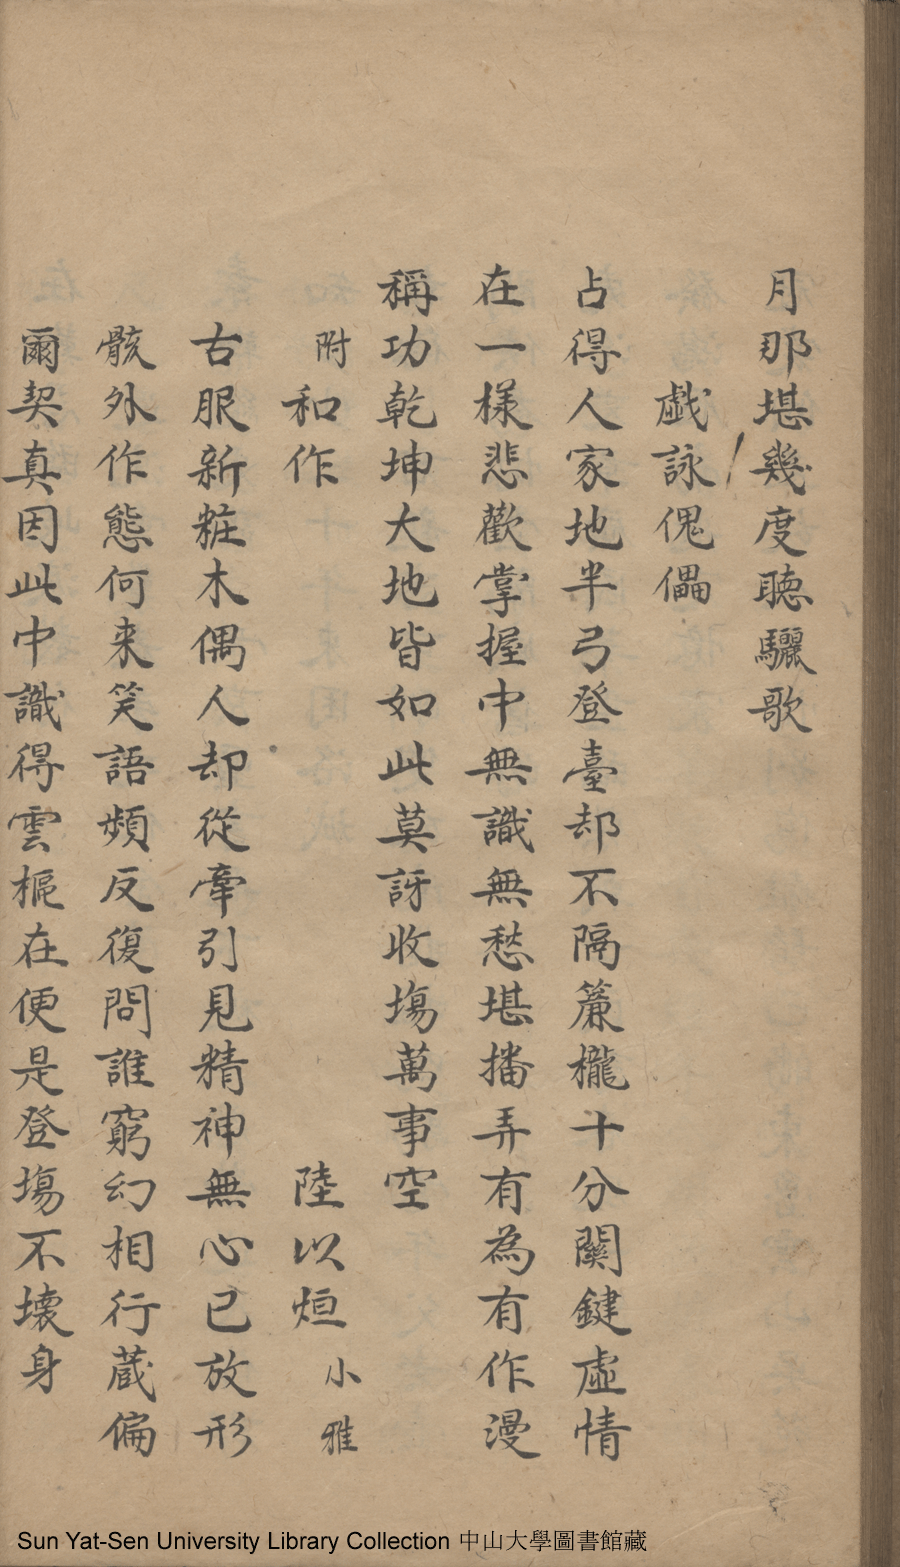 月那堪幾度聽驪歌
戲詠傀儡
占得人家地半弓登臺却不隔簾櫳十分關鍵虛情
在一樣悲歡掌握中無識無愁堪播弄有為有作漫
稱功乾坤大地皆如此莫訝收塲萬事空
附和作 陸以烜小雅
古服新粧木偶人却從牽引見精神無心已放形
骸外作態何来笑語頻反復問誰窮幻相行蔵偏
爾契真因此中識得雲樞在便是登塲不壊身
Sun Yat-Sen University Library Collection 中山大學圖書館藏